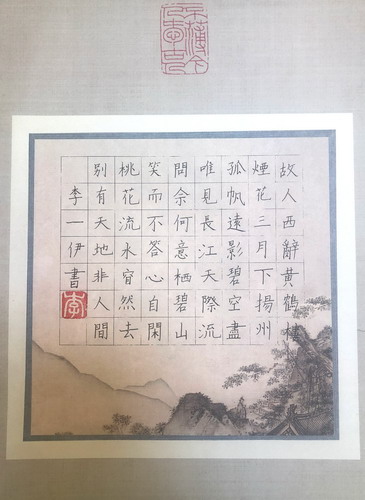 故人西辭黃鶴樓
煙花三月下揚州
孤帆遠影碧空盡
唯見長江天際流
問余何意栖碧山
笑而不答心自閑
桃花流水窅然去
別有天地非人間
李一伊書
李